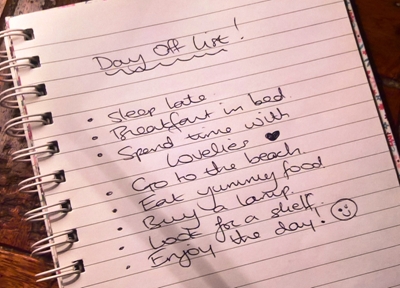 Day Off List!
• Sleep late
• Breakfast in bed
• Spend time with
lovelies ♥
• Go to the beach
• Eat yummy food
• Buy a lamp
• Look for a shelf
• Enjoy the day! ☺